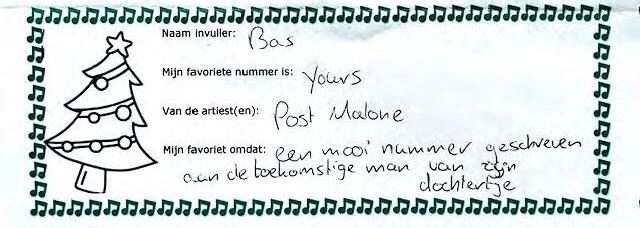 Naam invuller: Bas
Mijn favoriete nummer is: Yours
Van de artiest(en): Post Malone
Mijn favoriet omdat: een mooi nummer geschreven
aan de toekomstige man van zijn
dochtertje